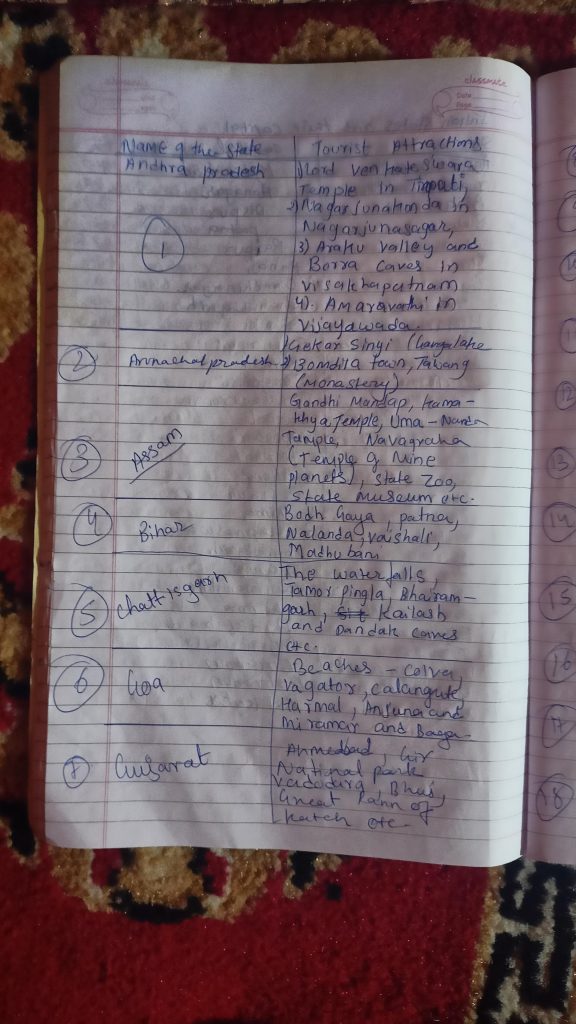 classmate
classmate
Date
Page
Name of the State
Tourist Attractions
Andhra pradesh
1) Lord Venkateswara
Temple in Tirpati,
2) Nagarjunakonda in
Nagarjunasagar,
1
3) Araku valley and
Borra caves in
visakhapatnam
4). Amaravathi in
Vijayawada.
2
Arunachal pradesh
1) Gekar Sinyi (Gangalake
2) Bomdila town, Tawang
(Monastery)
3
Assam
Gandhi Mandap, Kama-
khya Temple, Uma-Nanda
Temple, Navagraha
(Temple of Nine
planets), State Zoo,
State Museum etc.
4
Bihar
Bodh Gaya, patna,
Nalanda, vaishali,
Madhubani
5
Chattisgarh
The waterfalls,
Tamor Pingla, Bhairam-
garh, Kailash
and Dandak caves
etc.
6
Goa
Beaches - Colva,
Vagator, calangute,
Harmal, Anjuna and
Miramar and Baga-
7
Gujarat
Ahmedbad, Gir
National park
Vadodara, Bhuj,
Great Rann of
Katch etc.
12
13
14
15
16
17
18